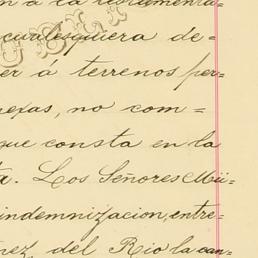 n á la
cualesquiera de=
er a terrenos per=
nexas, no com=
que consta en la
ta. Los Señores Mü=
indemnizacion, entre=
nez del Rio la can=